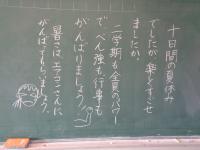 十日間の夏休み
でしたが楽しくすごせ
ましたか。
二学期も全員のパワー
で、べん強も行事も
がんばりましょう。
暑さは、エアコンさんに
がんばってもらいましょう。